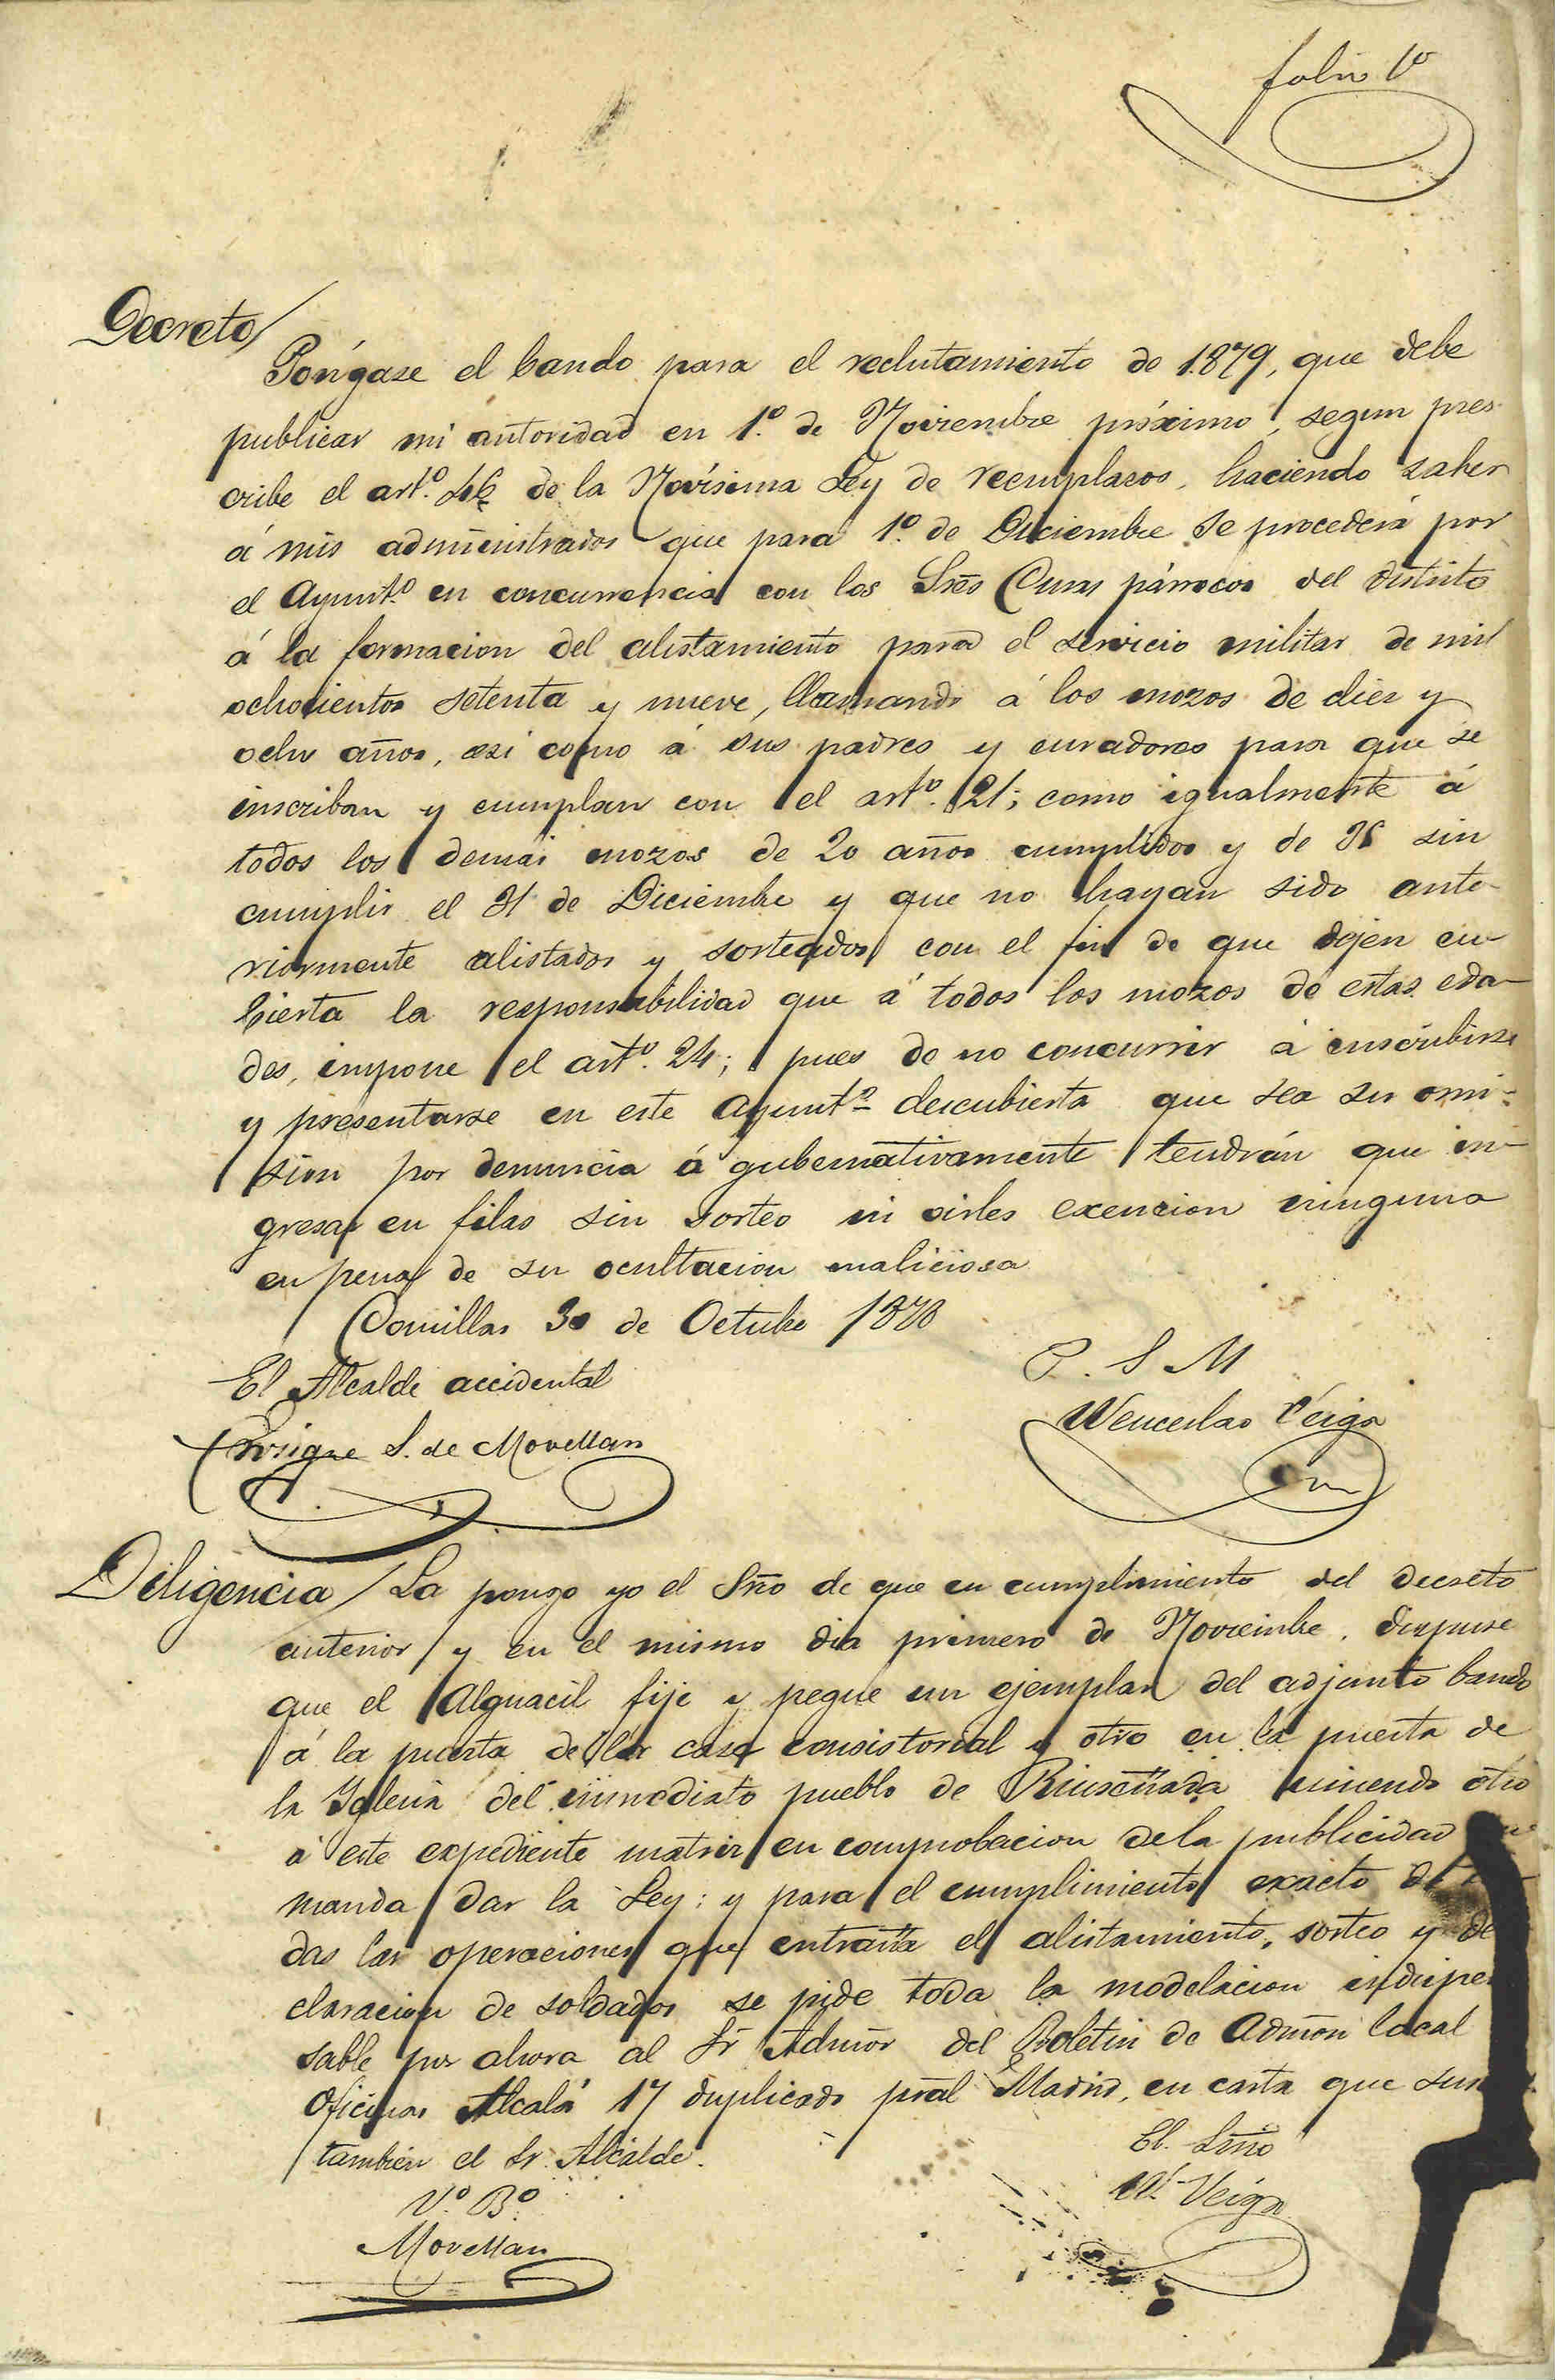 folio 1º
Decreto
Póngase el bando para el reclutamiento de 1.879, que debe
publicar mi autoridad en 1º. de Noviembre próximo, segun pres-
cribe el artº. 46 de la Novísima Ley de reemplazos, haciendo saber
á mis administrados que para 1º. de Diciembre se procederá por
el Ayuntº. en concurrencia con los Srês Curas párrocos del distrito
á la formacion del alistamiento para el servicio militar de mil
ochocientos setenta y nueve, llamando á los mozos de diez y
ocho años, asi como á sus padres y curadores para que se
inscriban y cumplan con el artº. 21; como igualmente á
todos los demás mozos de 20 años cumplidos y de sin
cumplir el 31 de Diciembre y que no hayan sido ante-
riormente alistados y sorteados con el fin de que dejen cu-
bierta la responsabilidad que á todos los mozos de estas eda-
des, impone el artº. 24; pues de no concurrir á inscribirse
y presentarse en este Ayuntº descubierta que sea su omi-
sion por denuncia á gubernativamente tendrán que in-
gresar en filas sin sorteo ni oirles exencion ninguna
en pena de su ocultacion maliciosa
Comillas 30 de Octubre 1878
El Alcalde accidental
P. S. M
Wenceslao Veiga
Enrique S. de Movellan
Diligencia / La pongo yo el Srio de que en cumplimiento del decreto
anterior y en el mismo dia primero de Noviembre, dispuse
que el Alguacil fije y pegue un ejemplar del adjunto bando
á la puerta de la casa consistorial y otro en la puerta de
la Iglesia del inmediato pueblo de Ruiseñada uniendo otro
á este expediente matriz en comprobacion de la publicidad
manda dar la Ley; y para el cumplimiento exacto de
das las operaciones que entraña el alistamiento, sorteo y de
claracion de soldados se pide toda la modelacion indispen
sable por ahora al Sr Admor del Boletin de Admon local
Oficinas Alcalá 17 duplicado pral Madrid, en carta que
tambien el Sr. Alcalde.
El Srio
W. Veiga
Vº. Bº.
Movellan